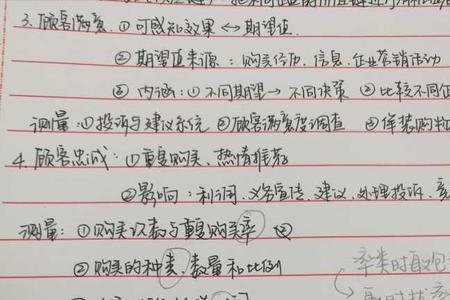 3. 顾客满意. ① 可感知效果 ↔ 期望值.
② 期望值来源: 购买经历. 信息. 企业营销活动
③ 内涵: ① 不同期望 → 不同决策 ② 比较不同企
测量: ① 投诉与建议系统 ② 顾客满意度调查 ③ 佯装购物
4. 顾客忠诚: ① 重复购买、热情推荐
② 影响: 利润、义务宣传、建议、处理投诉、
测量: ① 购买次数与重复购买率 ②
② 购买的种类、数量和比例
率类时取包
取时